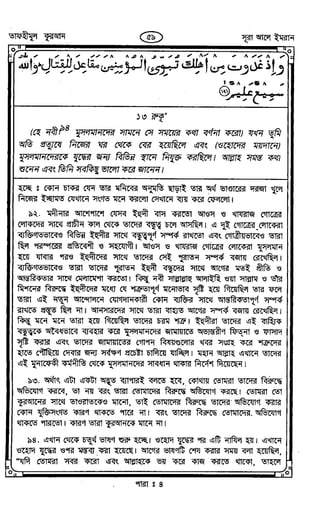 তাফহীমুল কুরআন ৫৯ সূরা আলে ইমরান
وَإِذْ غَدَوْتَ مِنْ أَهْلِكَ تُبَوِّئُ الْمُؤْمِنِينَ مَقَاعِدَ لِلْقِتَالِ ۗ وَاللَّهُ
سَمِيعٌ عَلِيمٌ
১৩ রুকূ'
(হে নবী!৯৪ মুসলমানদের সামনে সে সময়ের কথা বর্ণনা করো) যখন তুমি
অতি প্রত্যুষে নিজের ঘর থেকে বের হয়েছিলে এবং (ওহোদের ময়দানে)
মুসলমানদেরকে যুদ্ধের জন্য বিভিন্ন স্থানে নিযুক্ত করছিলে। আল্লাহ সমস্ত কথা
শুনেন এবং তিনি সবকিছু ভালো করে জানেন।
হচ্ছে : কোন চাকর যেন তার মনিবের অনুমতি ছাড়াই তার অর্থ ভাণ্ডারের দরজা খুলে
নিজের ইচ্ছামত যেখানে সংগত মনে করলো সেখানে ব্যয় করে ফেললো।
৯২. মদীনার আশেপাশে যেসব ইহুদী বাস করতো আওস ও খাযরাজ গোত্রের
লোকদের সাথে প্রাচীন কাল থেকে তাদের বন্ধুত্ব চলে আসছিল। এ দুই গোত্রের লোকেরা
ব্যক্তিগতভাবেও বিভিন্ন ইহুদীর সাথে বন্ধুত্বপূর্ণ সম্পর্ক রাখতো এবং গোত্রীয়ভাবেও তারা
ছিল পরস্পরের প্রতিবেশী ও সহযোগী। আওস ও খাযরাজ গোত্রের লোকেরা মুসলমান
হয়ে যাবার পরও ইহুদীদের সাথে তাদের সেই পুরাতন সম্পর্ক বজায় রেখেছিল।
ব্যক্তিগতভাবেও তারা তাদের পুরাতন ইহুদী বন্ধুদের সাথে আগের মতই প্রীতি ও
আন্তরিকতার সাথে মেলামেশা করতো। কিন্তু নবী সাল্লাল্লাহু আলাইহি ওয়া সাল্লাম ও তাঁর
মিশনের বিরুদ্ধে ইহুদীদের মধ্যে যে শত্রুতাপূর্ণ মনোভাব সৃষ্টি হয়ে গিয়েছিল তার ফলে
তারা এই নতুন আন্দোলনে যোগদানকারী কোন ব্যক্তির সাথে আন্তরিকতাপূর্ণ সম্পর্ক
রাখতে প্রস্তুত ছিল না। আনসারদের সাথে তারা বাহ্যত আগের সম্পর্ক বজায় রেখেছিল।
কিন্তু মনে মনে তারা হয়ে গিয়েছিল তাদের চরম শত্রু। ইহুদীরা তাদের এই বাহ্যিক
বন্ধুত্বকে অবৈধভাবে ব্যবহার করে মুসলমানদের জামায়াতে অভ্যন্তরীণ ফিত্‌না ও ফাসাদ
সৃষ্টি করার এবং তাদের জামায়াতের গোপন বিষয়গুলোর খবর সংগ্রহ করে শত্রুদের
হাতে পৌঁছিয়ে দেবার জন্য সর্বক্ষণ প্রচেষ্টা চালিয়ে যাচ্ছিল। মহান আল্লাহ এখানে তাদের
এই মুনাফেকী কর্মনীতি থেকে মুসলমানদের সাবধান থাকার নির্দেশ দিয়েছেন।
৯৩. অর্থাৎ এটা একটা অদ্ভুত ব্যাপারই বলতে হবে, কোথায় তোমরা তাদের বিরুদ্ধে
অভিযোগ করবে, তা নয় বরং তারা তোমাদের বিরুদ্ধে অভিযোগ করছে। তোমরা তো
কুরআনের সাথে তাওরাতকেও মানো, তাই তোমাদের বিরুদ্ধে তাদের অভিযোগ করার
কোন যুক্তিসংগত কারণ থাকতে পারে না। বরং তাদের বিরুদ্ধে তোমাদের অভিযোগ
থাকতে পারতো। কারণ তারা কুরআনকে মানে না।
৯৪. এখান থেকে চতুর্থ ভাষণ শুরু হচ্ছে। ওহোদ যুদ্ধের পর এটি নাযিল হয়। এখানে
ওহোদ যুদ্ধের ওপর মন্তব্য করা হয়েছে। আগের ভাষণটি শেষ করার সময় বলা হয়েছিল,
"যদি তোমরা সবর করো এবং আল্লাহকে ভয় করে কাজ করতে থাকো, তাহলে
পারা : ৪